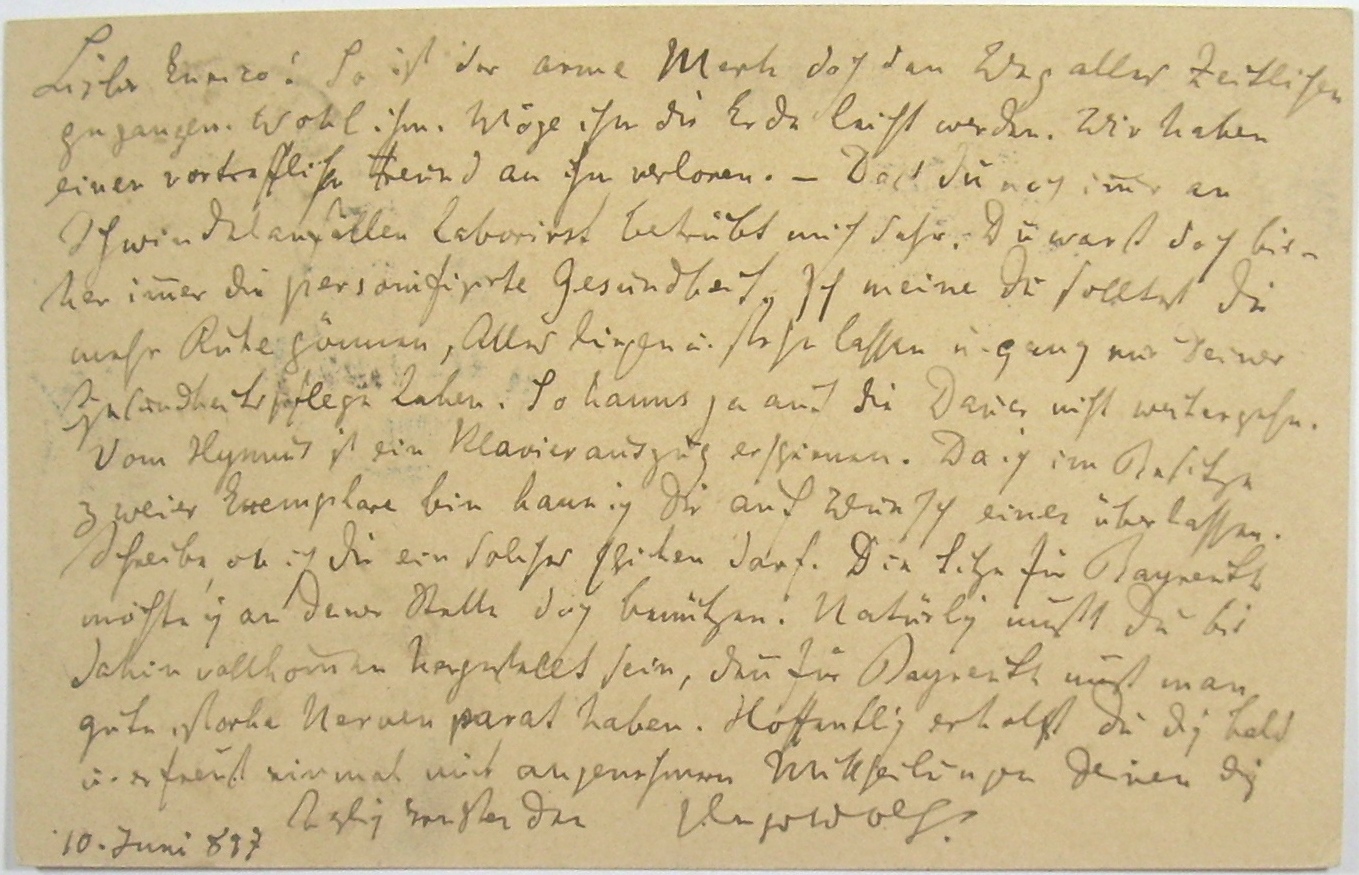 Lieber Enrico! So ist der arme Merk doch den Weg alles Zeitlichen
gegangen. Wohl ihm. Möge ihm die Erde leicht werden. Wir haben
einen vortrefflichen Freund an ihm verloren. – Daß du noch im̅er an
Schwindelanfällen laborirst betrübt mich sehr. Du warst doch bis-
her im̅er die personifizirte Gesundheit. Ich meine du solltest dir
mehr Ruhe gönnen, Alles liegen u. stehn lassen u. ganz nur deiner
Gesundheitspflege leben. So kanns ja auf die Dauer nicht weitergehn.
Vom Hymnus ist ein Klavierauszug erschienen. Da ich im Besitze
zweier Exemplare bin kann ich dir auf Wunsch eines überlassen.
Schreibe, ob ich dir ein solches schicken darf. Die Sitze für Bayreuth
möchte ich an deiner Stelle doch benützen. Natürlich mußt du bis
dahin vollkom̅en hergestellt sein, den̅ für Bayreuth muß man
gute, starke Nerven parat haben. Hoffentlich erholst du dich bald
u. erfreust einmal mit angenehmeren Mittheilungen deinen dich
herzlich grüßenden Hugo Wolf.
10. Juni 897